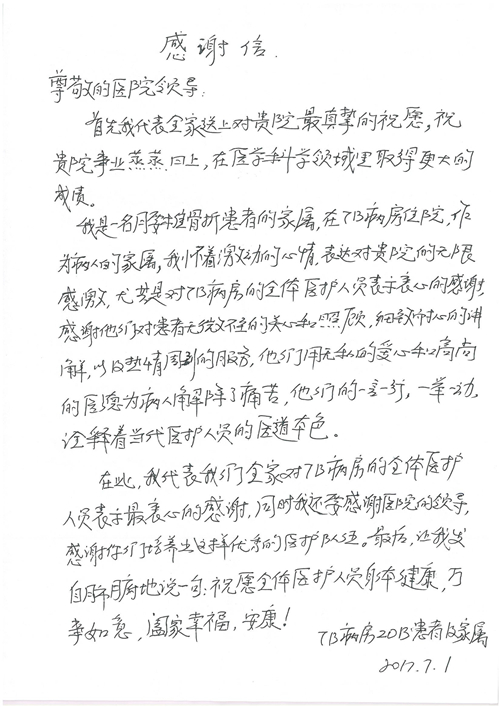 感谢信.
尊敬的医院领导:
首先我代表全家送上对贵院最真挚的祝愿,祝
贵院事业蒸蒸日上,在医学科学领域里取得更大的
成绩。
我是一名腰椎骨折患者的家属,在7B病房住院,作
为病人的家属,我怀着激动的心情,表达对贵院的无限
感激,尤其是对7B病房的全体医护人员表示衷心的感谢,
感谢他们对患者无微不至的关心和照顾,细致耐心的讲
解,以及热情周到的服务,他们用无私的爱心和高尚
的医德为病人解除了痛苦,他们的一言一行,一举一动,
诠释着当代医护人员的医道本色。
在此,我代表我们全家对7B病房的全体医护
人员表示最衷心的感谢,同时我还要感谢医院的领导,
感谢你们培养出这样优秀的医护队伍。最后,让我发
自肺腑地说一句:祝愿全体医护人员身体健康,万
事如意,阖家幸福,安康!
7B病房20B患者及家属
2017.7.1